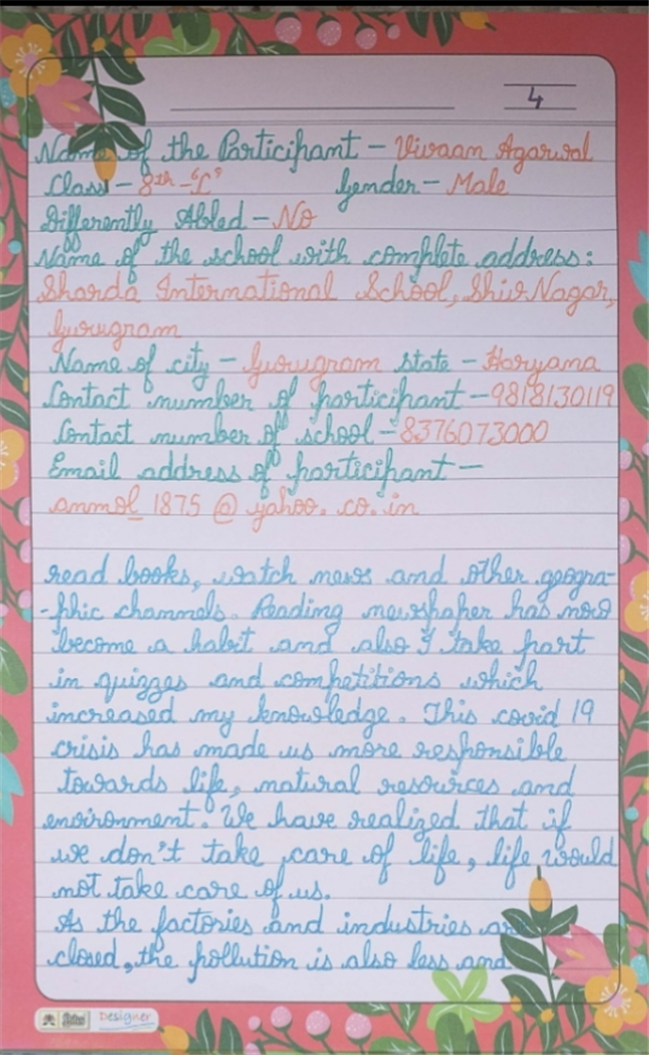 4
Name of the Participant - Vivaan Agarwal
Class - 8th - "C" Gender - Male
Differently Abled - No
Name of the school with complete address:
Sharda International School, Shiv Nagar,
Gurugram
Name of city - Gurugram state - Haryana
Contact number of participant - 9818130119
Contact number of school - 8376073000
Email address of participant -
anmol_1875@yahoo.co.in
read books, watch news and other geogra-
-phic channels. Reading newspaper has now
become a habit and also I take part
in quizzes and competitions which
increased my knowledge. This covid 19
crisis has made us more responsible
towards life, natural resources and
environment. We have realized that if
we don't take care of life, life would
not take care of us.
As the factories and industries are
closed, the pollution is also less and
Designer